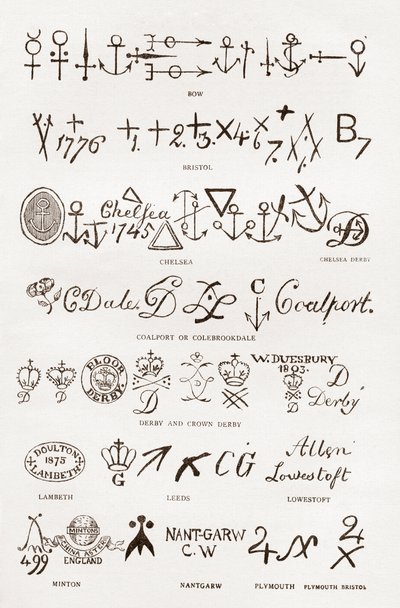 BOW
1776 1. 2. 3. X4. 6 7. B7
BRISTOL
Chelsea
1745
CHELSEA
CHELSEA DERBY
CDale. Coalport.
COALPORT OR COLEBROOKDALE
BLOOR
DERBY
D
W. DUESBURY
1803.
D
D
Derby
DERBY AND CROWN DERBY
DOULTON
1875
LAMBETH
G
C G
Allen
Lowestoft
LAMBETH
LEEDS
LOWESTOFT
499
MINTONS
CHINA ASTER
ENGLAND
NANT-GARW
C.W
MINTON
NANTGARW
PLYMOUTH
PLYMOUTH BRISTOL